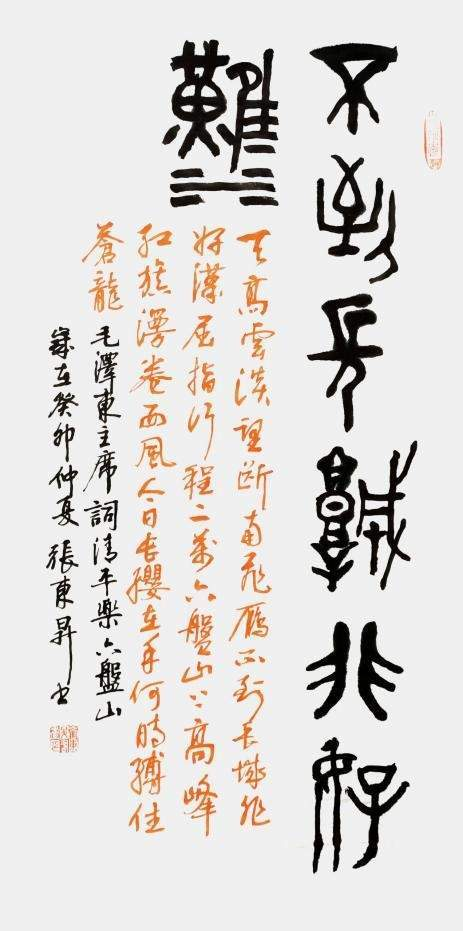 不到長城非好
漢
天高雲淡望断南飛雁不到長城非
好漢屈指行程二萬六盤山上高峰
紅旗漫卷西風今日長纓在手何時縛住
蒼龍
毛澤東主席詞清平樂六盤山
歲在癸卯仲夏 張東昇书